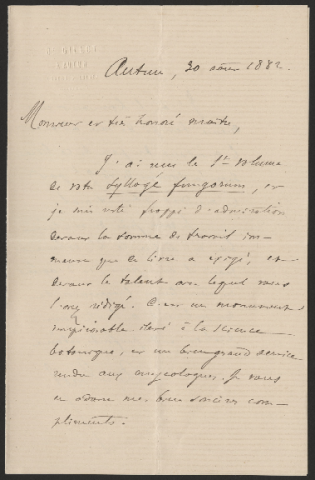 Autun, 30 1882.
Monsieur et très honoré maître,
J'ai reçu le 1er volume
de votre Sylloge fungorum, et
je suis resté frappé d'admiration
devant la somme de travail im-
mense que ce livre a exigé, et
devant le talent avec lequel vous
l'avez rédigé. C'est un monument
impérissable élevé à la science
botanique, et un bien grand service
rendu aux mycologues. Je vous
en adresse mes bien sincères com-
pliments.